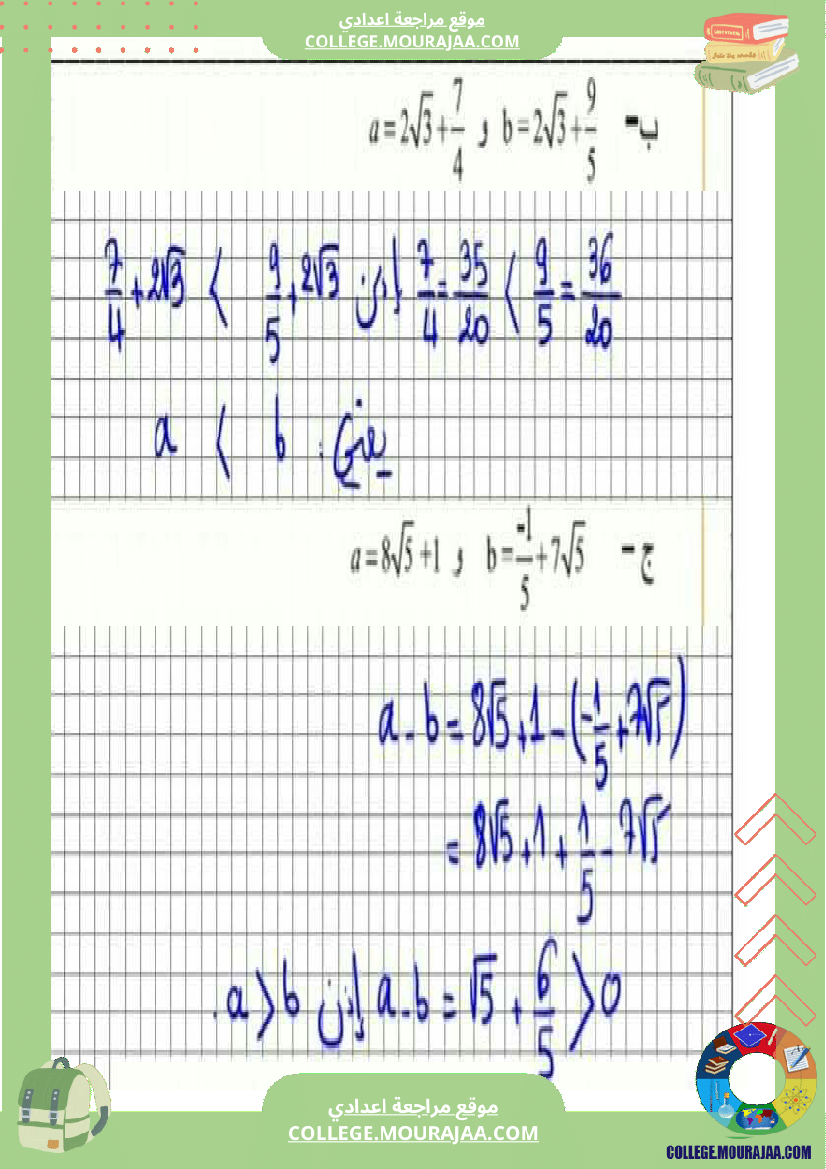 موقع مراجعة اعدادي
COLLEGE.MOURAJAA.COM
ب- a=2√3+7/4 و b=2√3+9/5
7/4+2√3 < 9/5+2√3 إذن 7/4=35/20 < 9/5=36/20
a < b يعني:
ج- a=8√5+1 و b=-1/5+7√5
a-b=8√5+1-(-1/5+7√5)
=8√5+1+1/5-7√5
a>b إذن a-b=√5+6/5>0
موقع مراجعة اعدادي
COLLEGE.MOURAJAA.COM
COLLEGE.MOURAJAA.COM